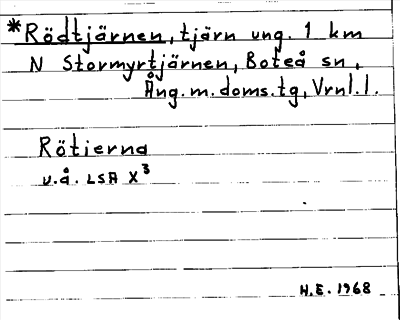 *Rödtjärnen, tjärn ung. 1 km
N Stormyrtjärnen, Boteå sn,
Ång.m.doms.tg, Vrnl.l.
Rötierna
u.å. LSA X³
H.E. 1968